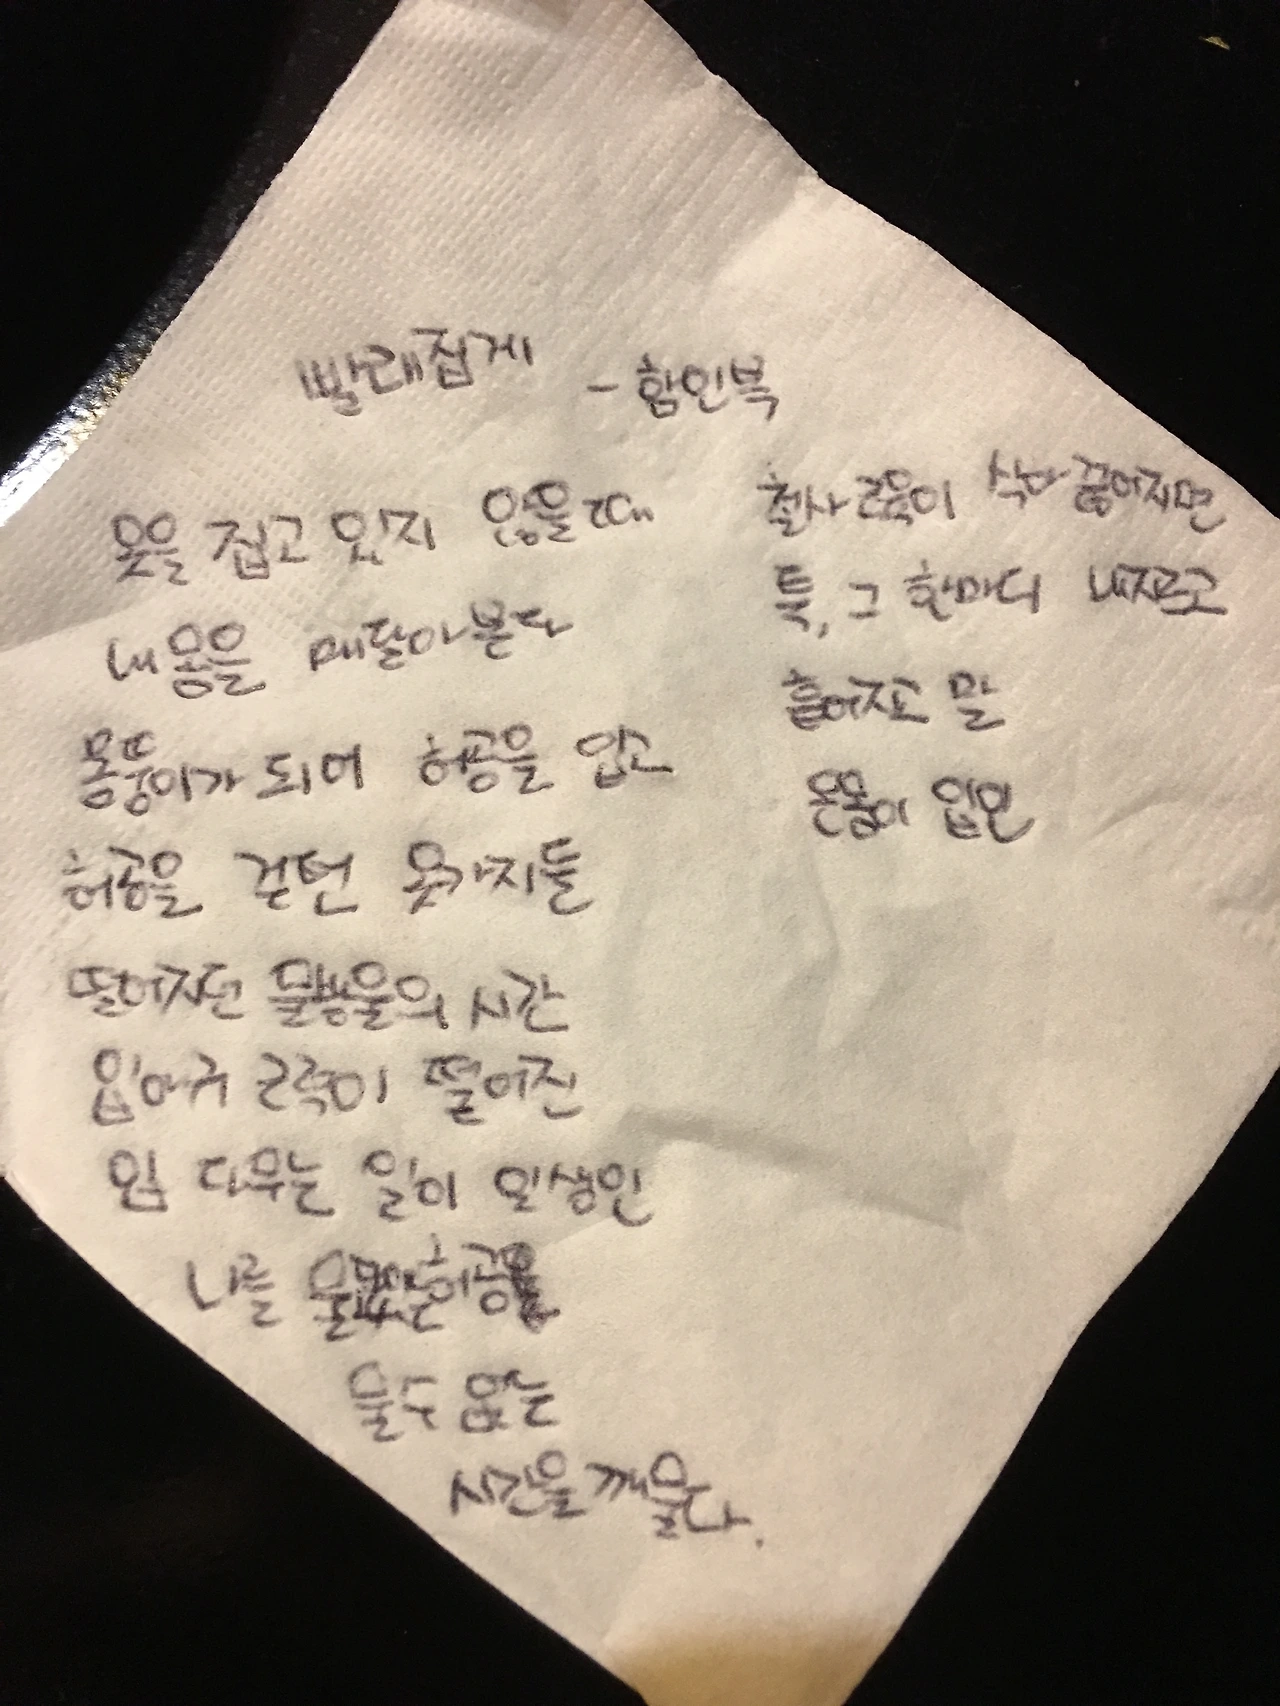 빨래집게
- 함민복
옷을 집고 있지 않을 때
내 몸을 매달아 본다
몸뚱이가 되어 허공을 입고
허공을 걷던 옷가지들
떨어지던 물방울의 시간
입아귀 근력이 떨어진
입 다무는 일이 일생인
나를 물고 있는 허공을
물 수 없는
시간을 깨물다.
철사 근육이 삭아 끊어지면
툭, 그 한마디 내지르고
흩어지고 말
온몸이 입인